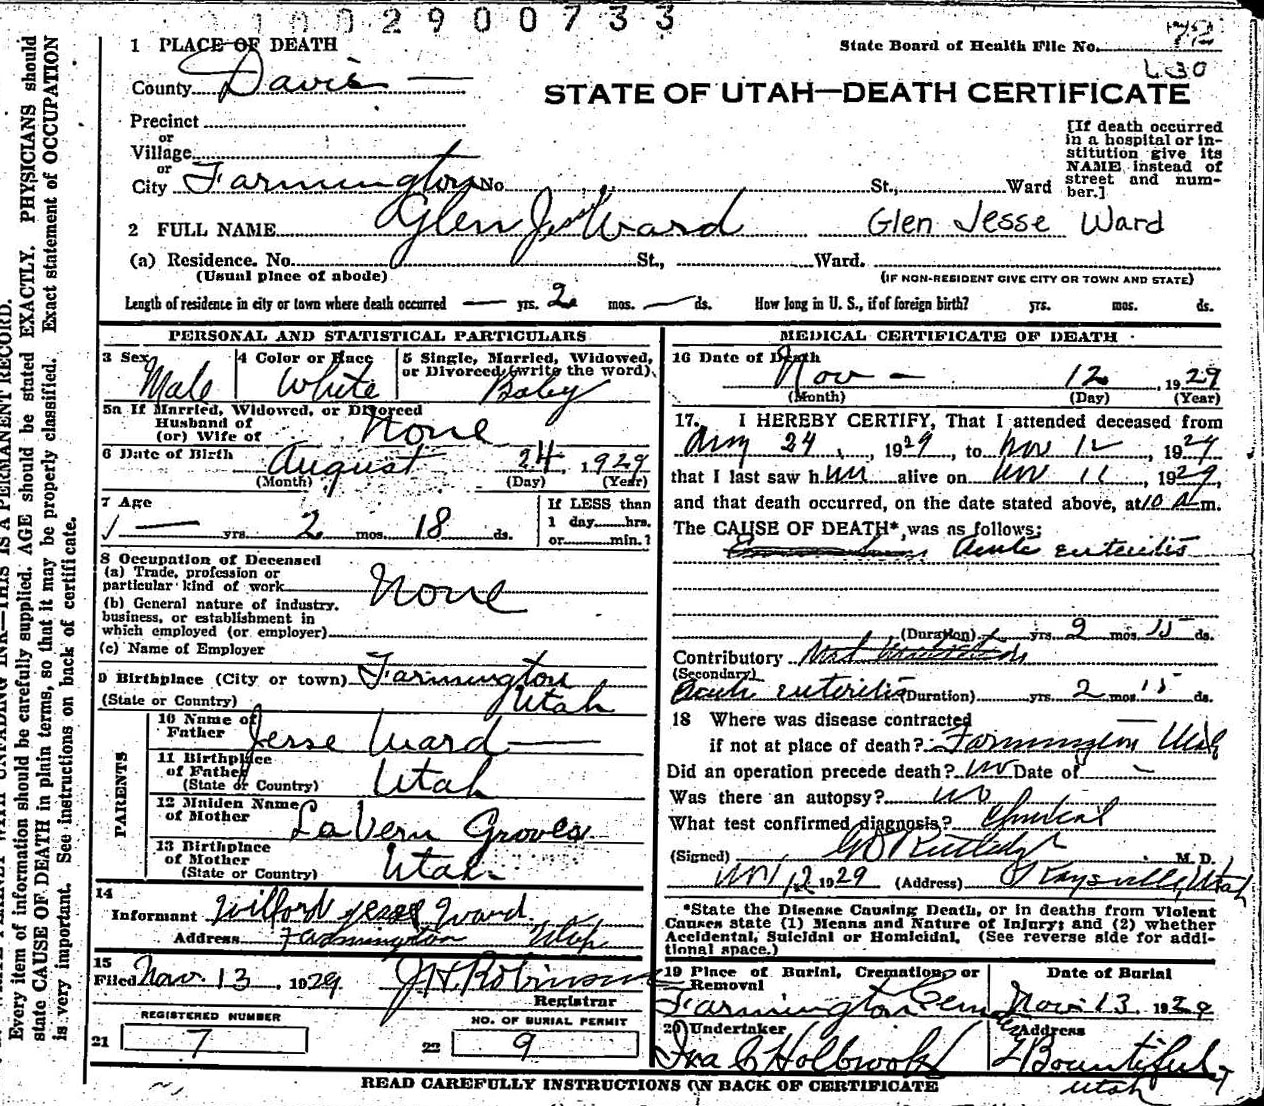 1002900733
1 PLACE OF DEATH
State Board of Health File No. 72
County Davis
L30
STATE OF UTAH—DEATH CERTIFICATE
Precinct
or
Village
or
City Farmington No. St., Ward
[If death occurred
in a hospital or in-
stitution give its
NAME instead of
street and num-
ber.]
2 FULL NAME Glen Jesse Ward Glen Jesse Ward
(a) Residence. No. St., Ward.
(Usual place of abode) (IF NON-RESIDENT GIVE CITY OR TOWN AND STATE)
Length of residence in city or town where death occurred — yrs. 2 mos. — ds. How long in U. S., if of foreign birth? yrs. mos. ds.
PERSONAL AND STATISTICAL PARTICULARS
3 Sex Male
4 Color or Race White
5 Single, Married, Widowed,
or Divorced (write the word)
Baby
5a If Married, Widowed, or Divorced
Husband of
(or) Wife of None
6 Date of Birth August 24, 1929
(Month) (Day) (Year)
7 Age
— yrs. 2 mos. 18 ds.
If LESS than
1 day hrs.
or min.?
8 Occupation of Deceased
(a) Trade, profession or
particular kind of work None
(b) General nature of industry,
business, or establishment in
which employed (or employer)
(c) Name of Employer
9 Birthplace (City or town) Farmington
(State or Country) Utah
PARENTS
10 Name of
Father Jesse Ward
11 Birthplace
of Father
(State or Country) Utah
12 Maiden Name
of Mother LaVern Groves
13 Birthplace
of Mother
(State or Country) Utah
14
Informant Wilford Jesse Ward
Address Farmington Utah
15
Filed Nov. 13, 1929 J H Robinson
Registrar
REGISTERED NUMBER
21 7
NO. OF BURIAL PERMIT
22 9
MEDICAL CERTIFICATE OF DEATH
16 Date of Death
Nov — 12, 1929
(Month) (Day) (Year)
17. I HEREBY CERTIFY, That I attended deceased from
Aug 24, 1929, to Nov 12, 1929
that I last saw him alive on Nov 11, 1929,
and that death occurred, on the date stated above, at 10 a m.
The CAUSE OF DEATH*, was as follows:
Acute enteritis
(Duration) yrs. 2 mos. 15 ds.
Contributory
(Secondary)
Acute enteritis (Duration) yrs. 2 mos. 15 ds.
18 Where was disease contracted
if not at place of death? Farmington Utah
Did an operation precede death? no Date of —
Was there an autopsy? no
What test confirmed diagnosis? Clinical
(Signed) G D Rutledge M. D.
Nov 12 1929 (Address) Kaysville, Utah
*State the Disease Causing Death, or in deaths from Violent
Causes state (1) Means and Nature of Injury; and (2) whether
Accidental, Suicidal or Homicidal. (See reverse side for addi-
tional space.)
19 Place of Burial, Cremation, or
Removal
Farmington Cemetery
Date of Burial
Nov. 13. 1929
20 Undertaker
Ira C Holbrook
Address
Bountiful
Utah
READ CAREFULLY INSTRUCTIONS ON BACK OF CERTIFICATE
Every item of information should be carefully supplied. AGE should be stated EXACTLY. PHYSICIANS should
state CAUSE OF DEATH in plain terms, so that it may be properly classified. Exact statement of OCCUPATION
is very important. See instructions on back of certificate.